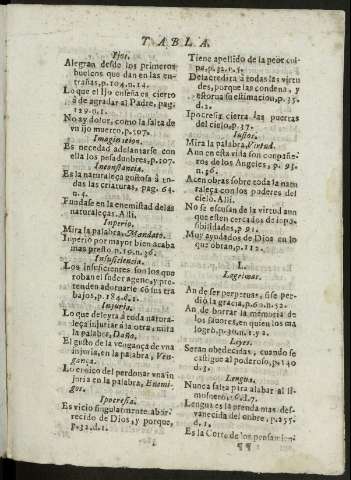 TABLA.
Ijos.
Alegran desde los primeros
buelcos que dan en las en-
trañas, p. 104. n. 14.
Lo que el Ijo enseña es cierto
á de agradar al Padre, pag.
129. n. 1.
No ay dolor, como la falta de
vn ijo muerto, p. 107.
Imaginacion.
Es necedad adelantarse con
ella los pesadumbres, p. 107.
Inconstancia.
Es la naturaleça gustosa à en
das las criaturas, pag. 64.
n. 4.
Fundase en la enemistad de las
naturaleças. Alli.
Inperio.
Mira la palabra, Mandato.
Inperiò por mayor bien acaba
mas presto. p. 19. n. 36.
Insuficiencia.
Los insuficientes son los que
roban el sudor ageno, y pre-
tenden adornarse cõ sus tra
bajos, p. 184. d. 1.
Injuria.
Lo que deleyta à toda natura-
leça injuriar à la otra, mira
la palabra, Daño.
El gusto de la vengança de vna
injuria, en la palabra, Ven-
gança.
Lo eroico del perdonar vna in
juria en la palabra, Enemi-
gos.
Ipocresia.
Es vicio singularmente abor-
recido de Dios, y porque,
p. 32. d. 1.
Tiene apellido de la peor cul-
pa, p. 32. n. 5.
Desacredita à todas las virtu
des, porque las condena, y
estorua su estimacion, p. 35.
d. 2.
Ipocresia cierra las puertas
del cielo, p. 37.
Iustos.
Mira la palabra, Virtud.
Aun en esta vida son conpañe-
ros de los Angeles, p. 93.
n. 36.
Acen obras sobre toda la natu
raleça con los poderes del
cielo. Alli.
No se escusan de la virtud aun
que esten cercados de inpo-
sibilidades, p. 91.
Muy ayudados de Dios en lo
que obran, p. 112.
L.
Lagrimas.
An de ser perpetuas, si se per-
diò la gracia, p. 60. n. 52.
An de borrar la memoria de
los fauores, en quien los ma
logrò, p. 30. n. 152.
Leyes.
Seran obedecidas, quando se
castigue al poderoso, p. 140
d. 3.
Lengua.
Nunca falta para alabar al si-
momento, 6. d. 7.
Lengua es la prenda mas des-
vanecida del onbre, p. 255.
d. 1.
Es la Corte de los pensamien-
¶¶